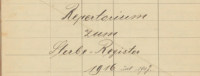 Repertorium
zum
Sterbe-Register
1916